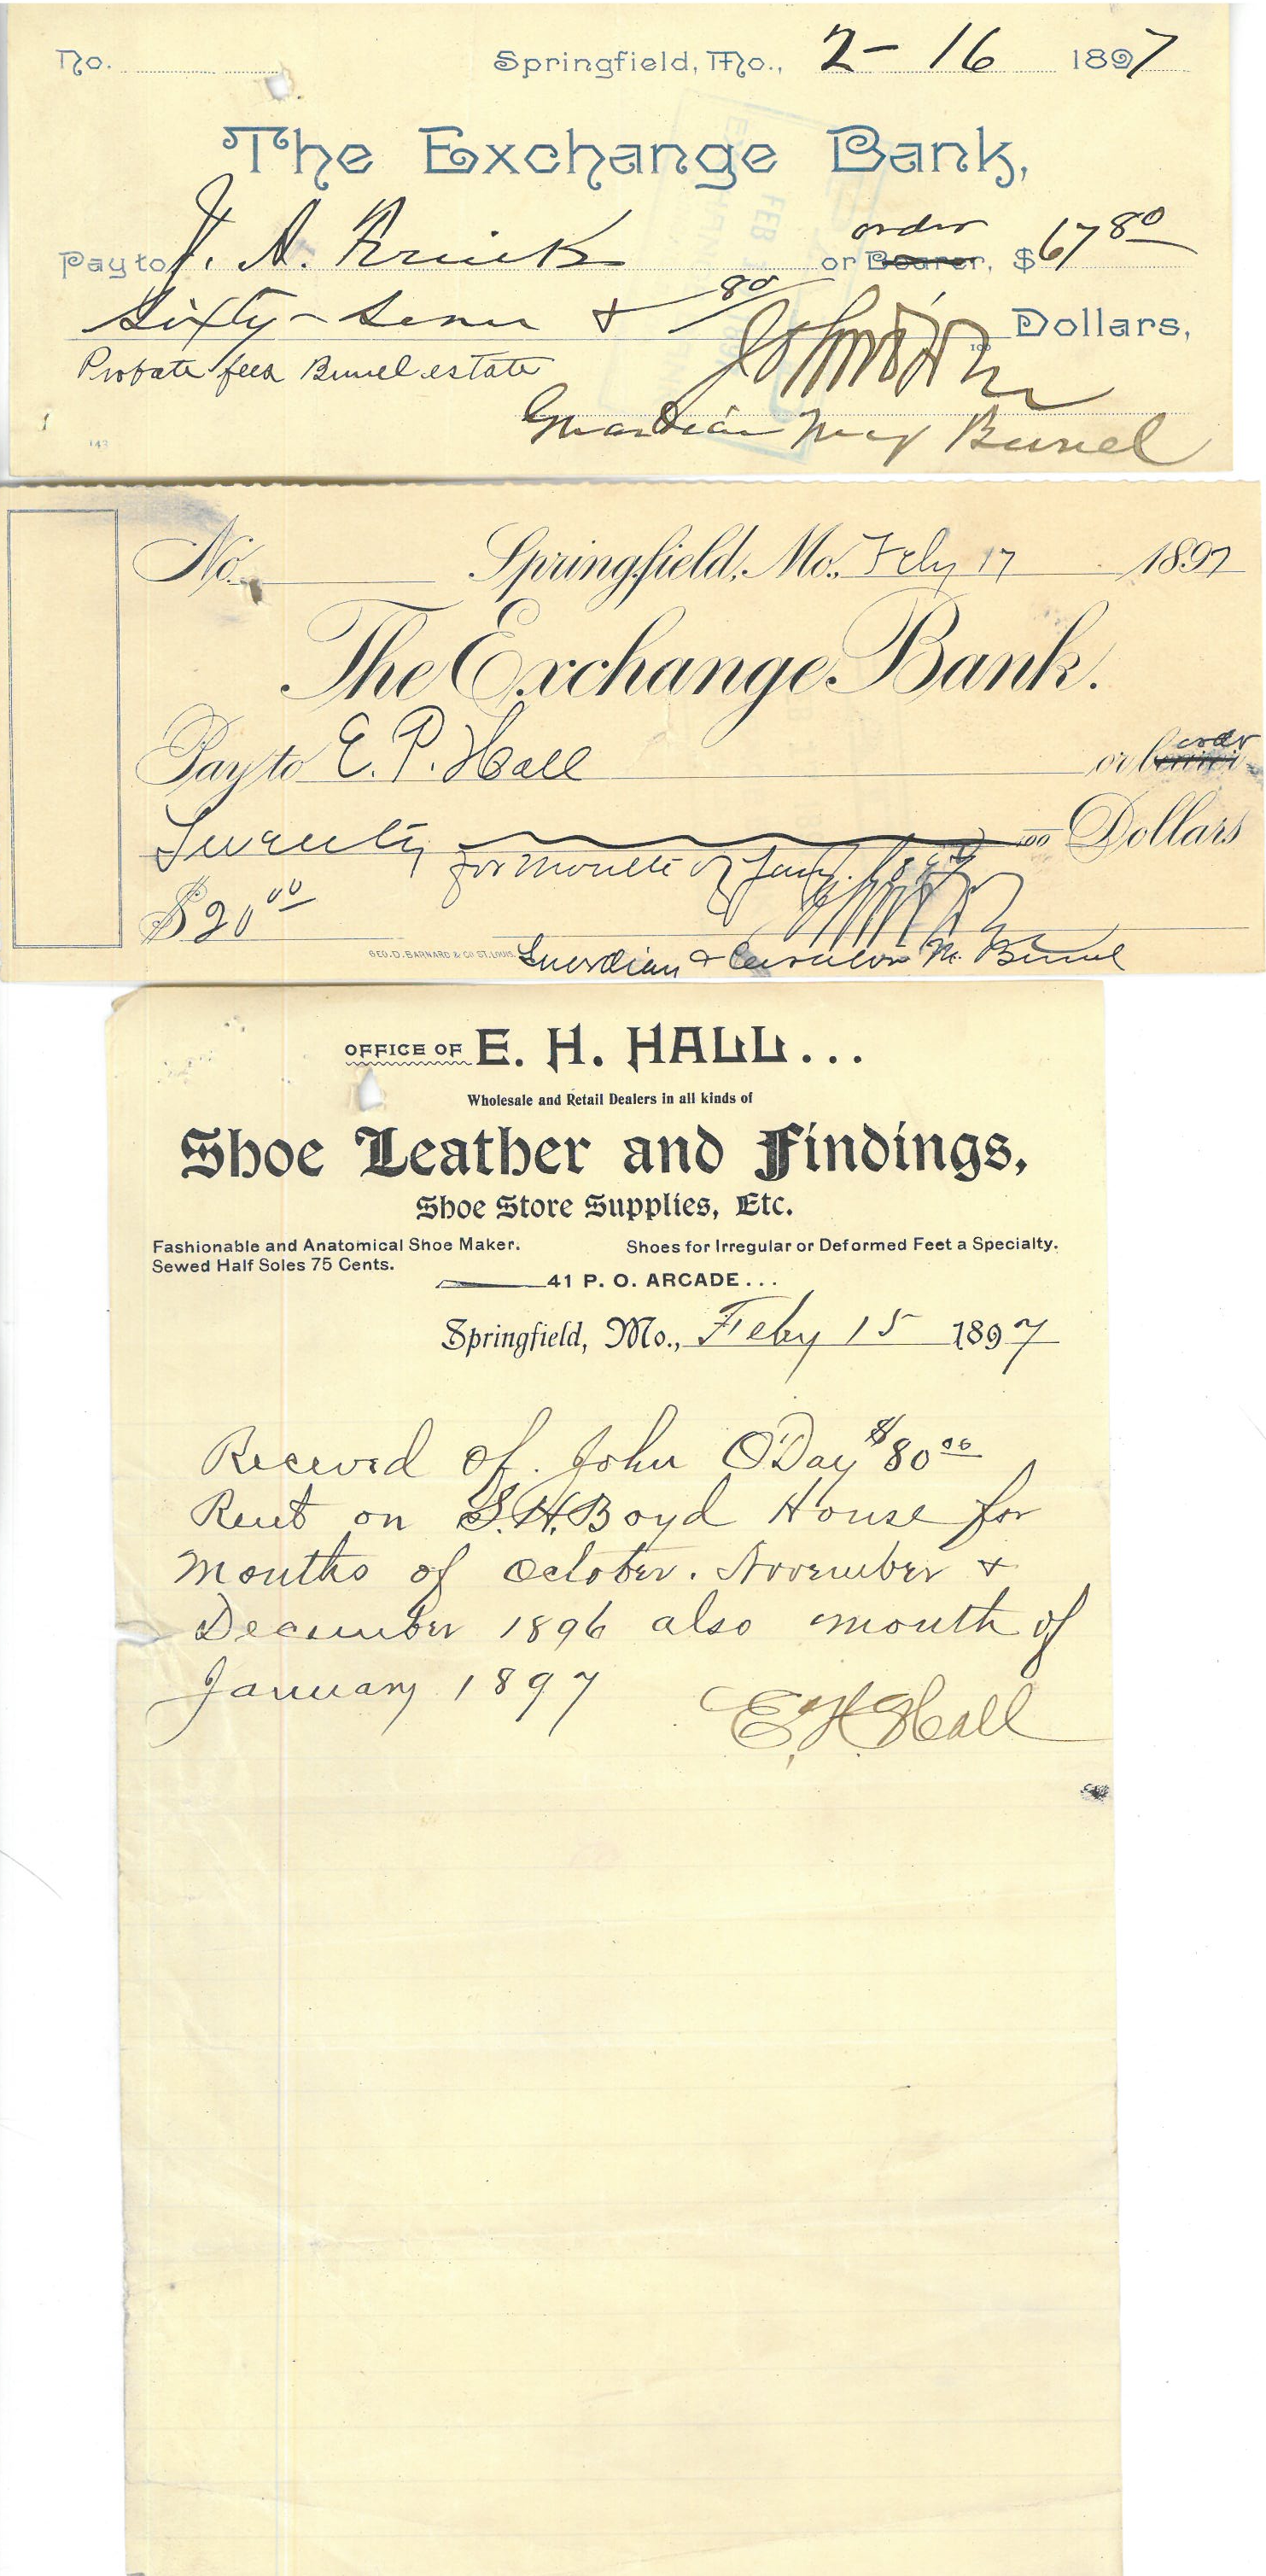 No.
Springfield, Mo., 2-16 1897
The Exchange Bank,
order
Pay to J. A. Frink or Bearer, $67 80
Sixty-seven & 80/100 Dollars,
Probate fees Bunel estate
John O'Day
Guardian May Bunel
143
No. Springfield, Mo. Feby 17 1897
The Exchange Bank.
order
Pay to E. P. Hall or bearer
Twenty 100 Dollars
for month of Jany.
$20 00
GEO. D. BARNARD & CO ST. LOUIS.
Guardian & Curator M. Bunel
OFFICE OF E. H. HALL...
Wholesale and Retail Dealers in all kinds of
Shoe Leather and Findings,
Shoe Store Supplies, Etc.
Fashionable and Anatomical Shoe Maker. Shoes for Irregular or Deformed Feet a Specialty.
Sewed Half Soles 75 Cents.
41 P. O. ARCADE...
Springfield, Mo., Feby 15 1897
Received of John O'Day $80 00
Rent on S. H. Boyd House for
months of October. November &
December 1896 also month of
January 1897
E. H. Hall